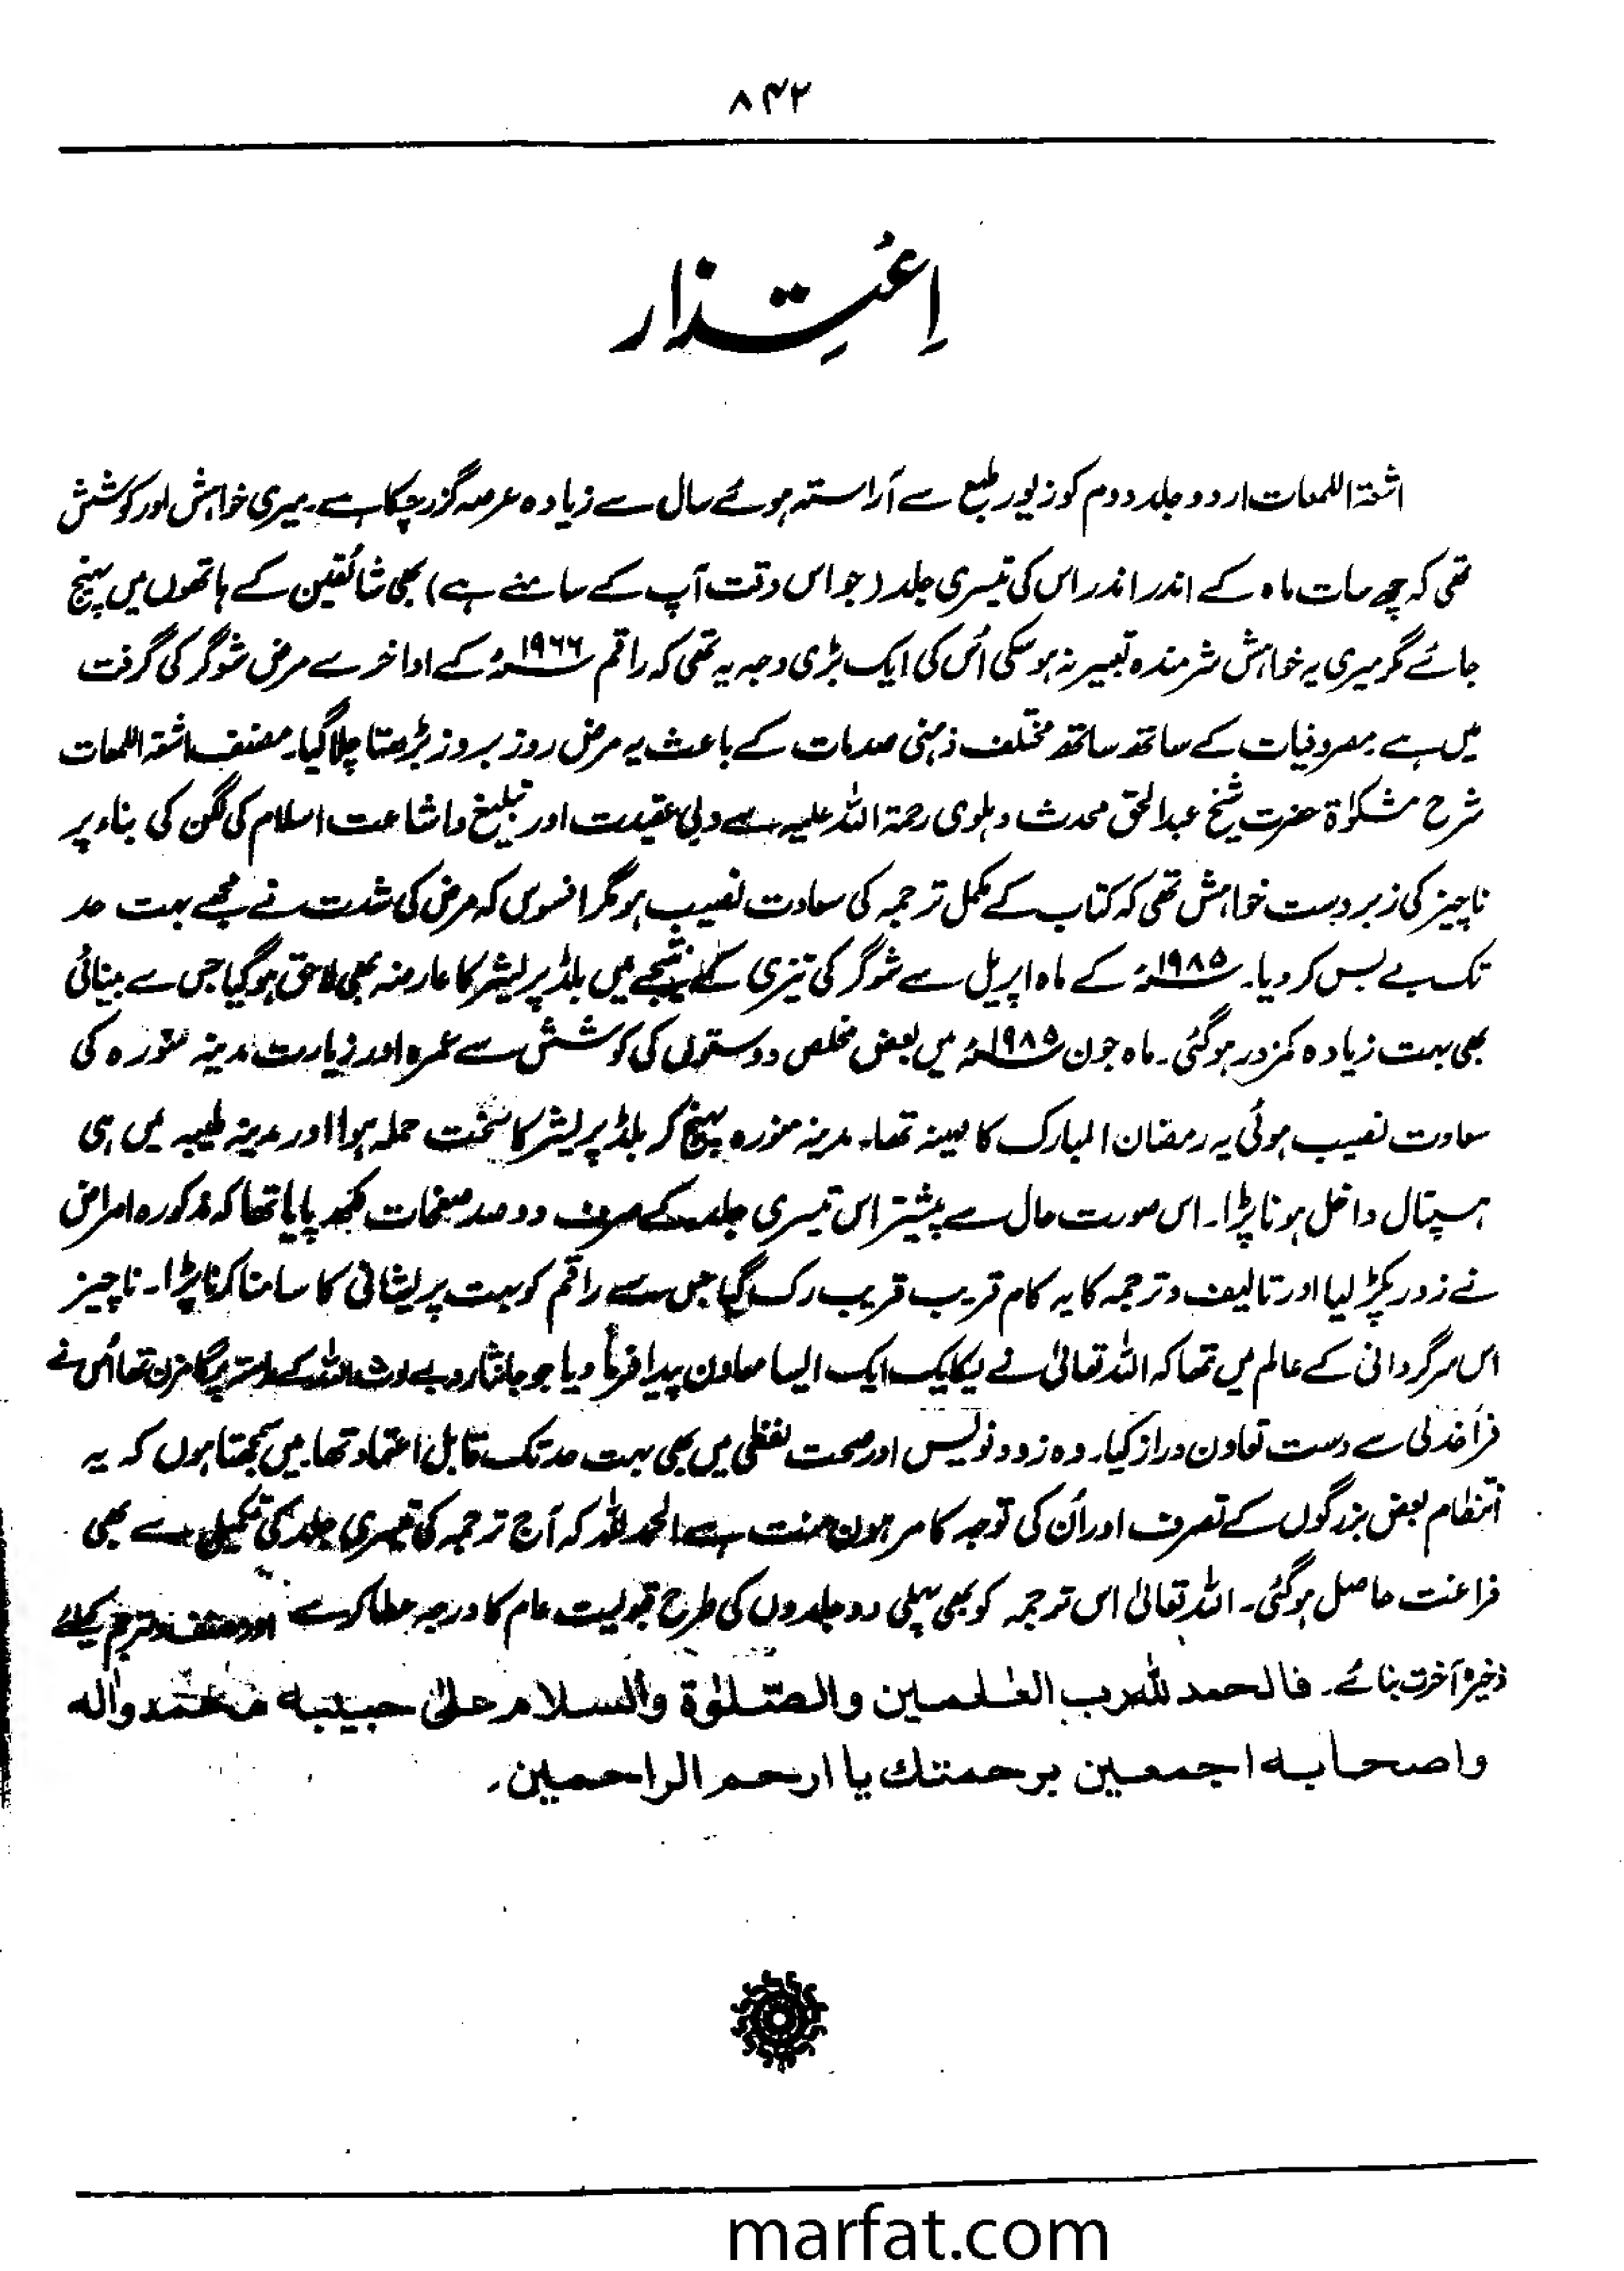 ۸۴۲
اِعْتِذار
اشعۃ اللمعات اردو جلد دوم کو زیور طبع سے آراستہ ہوئے سال سے زیادہ عرصہ گزر چکا ہے۔ میری خواہش اور کوشش
تھی کہ چھ سات ماہ کے اندر اندر اس کی تیسری جلد (جو اس وقت آپ کے سامنے ہے) بھی شائقین کے ہاتھوں میں پہنچ
جائے مگر میری یہ خواہش شرمندہ تعبیر نہ ہوسکی اُس کی ایک بڑی وجہ یہ تھی کہ راقم ۱۹۶۶ء کے اواخر سے مرض شوگر کی گرفت
میں ہے مصروفیات کے ساتھ ساتھ مختلف ذہنی صدمات کے باعث یہ مرض روز بروز بڑھتا چلا گیا۔ مصنف اشعۃ اللمعات
شرح مشکوٰۃ حضرت شیخ عبدالحق محدث دہلوی رحمۃ اللہ علیہ سے دلی عقیدت اور تبلیغ و اشاعت اسلام کی لگن کی بناء پر
ناچیز کی زبردست خواہش تھی کہ کتاب کے مکمل ترجمہ کی سعادت نصیب ہو مگر افسوس کہ مرض کی شدت نے مجھے بہت حد
تک بے بس کر دیا۔ ۱۹۸۵ء کے ماہ اپریل سے شوگر کی تیزی کے نتیجے میں بلڈ پریشر کا عارضہ بھی لاحق ہوگیا جس سے بینائی
بھی بہت زیادہ کمزور ہوگئی۔ ماہ جون ۱۹۸۵ء میں بعض مخلص دوستوں کی کوشش سے عمرہ اور زیارت مدینہ منورہ کی
سعادت نصیب ہوئی یہ رمضان المبارک کا مہینہ تھا۔ مدینہ منورہ پہنچ کر بلڈ پریشر کا سخت حملہ ہوا اور مدینہ طیبہ میں ہی
ہسپتال داخل ہونا پڑا۔ اس صورت حال سے پیشتر اس تیسری جلد کے صرف دو صد صفحات لکھ پایا تھا کہ مذکورہ امراض
نے زور پکڑ لیا اور تالیف و ترجمہ کا یہ کام قریب قریب رک گیا جس سے راقم کو بہت پریشانی کا سامنا کرنا پڑا۔ ناچیز
اس سرگردانی کے عالم میں تھا کہ اللہ تعالیٰ نے یکایک ایک ایسا معاون پیدا فرما دیا جو جانثار و بے لوث اللہ کے راستہ پر گامزن تھا اُس نے
فراخدلی سے دست تعاون دراز کیا۔ وہ زود نویس اور صحت لفظی میں بھی بہت حد تک قابل اعتماد تھا۔ میں سمجھتا ہوں کہ یہ
انتظام بعض بزرگوں کے تصرف اور اُن کی توجہ کا مرہون منت ہے الحمد للہ کہ آج ترجمہ کی تیسری جلد کی تکمیل سے بھی
فراغت حاصل ہوگئی۔ اللہ تعالیٰ اس ترجمہ کو بھی پہلی دو جلدوں کی طرح قبولیت عام کا درجہ عطا کرے اور مصنف و مترجم کیلئے
ذخیرۂ آخرت بنائے۔ فالحمد للہ رب العٰلمین والصّلوٰۃ والسلام علیٰ حبیبہ محمّد واٰلہ
واصحابہ اجمعین برحمتك یا ارحم الراحمین۔
marfat.com